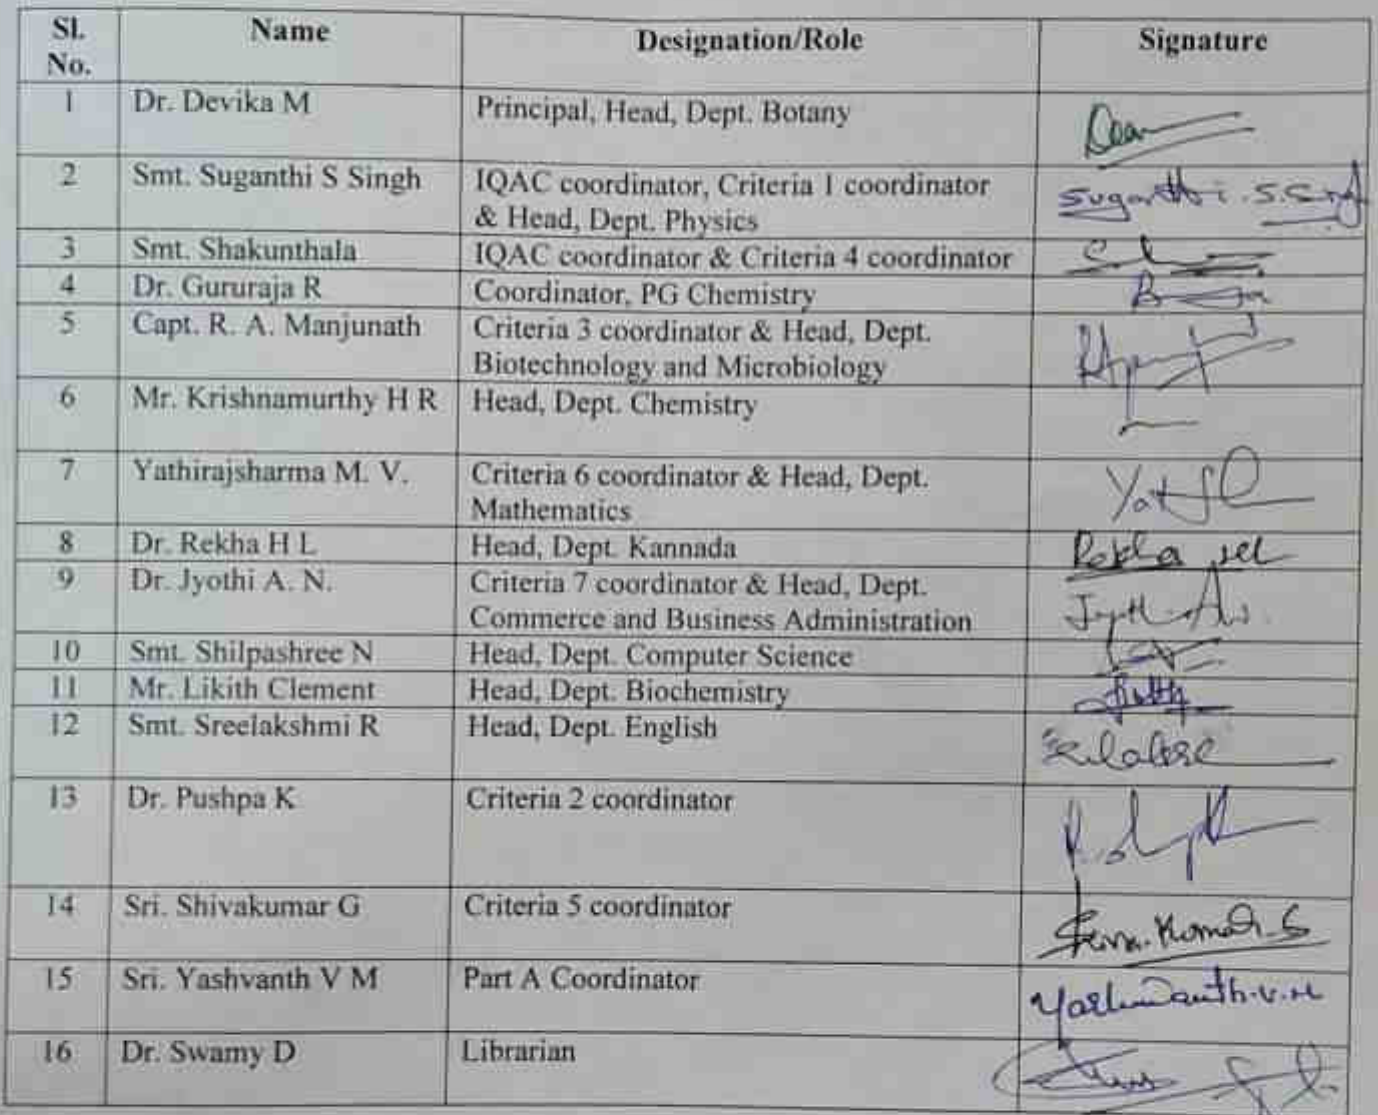 Sl. No. Name Designation/Role Signature
1 Dr. Devika M Principal, Head, Dept. Botany
2 Smt. Suganthi S Singh IQAC coordinator, Criteria 1 coordinator Suganthi. S. Singh
& Head, Dept. Physics
3 Smt. Shakunthala IQAC coordinator & Criteria 4 coordinator
4 Dr. Gururaja R Coordinator, PG Chemistry
5 Capt. R. A. Manjunath Criteria 3 coordinator & Head, Dept.
Biotechnology and Microbiology
6 Mr. Krishnamurthy H R Head, Dept. Chemistry
7 Yathirajsharma M. V. Criteria 6 coordinator & Head, Dept.
Mathematics
8 Dr. Rekha H L Head, Dept. Kannada Rekha HL
9 Dr. Jyothi A. N. Criteria 7 coordinator & Head, Dept.
Commerce and Business Administration
10 Smt. Shilpashree N Head, Dept. Computer Science
11 Mr. Likith Clement Head, Dept. Biochemistry
12 Smt. Sreelakshmi R Head, Dept. English
13 Dr. Pushpa K Criteria 2 coordinator
14 Sri. Shivakumar G Criteria 5 coordinator
15 Sri. Yashvanth V M Part A Coordinator
16 Dr. Swamy D Librarian